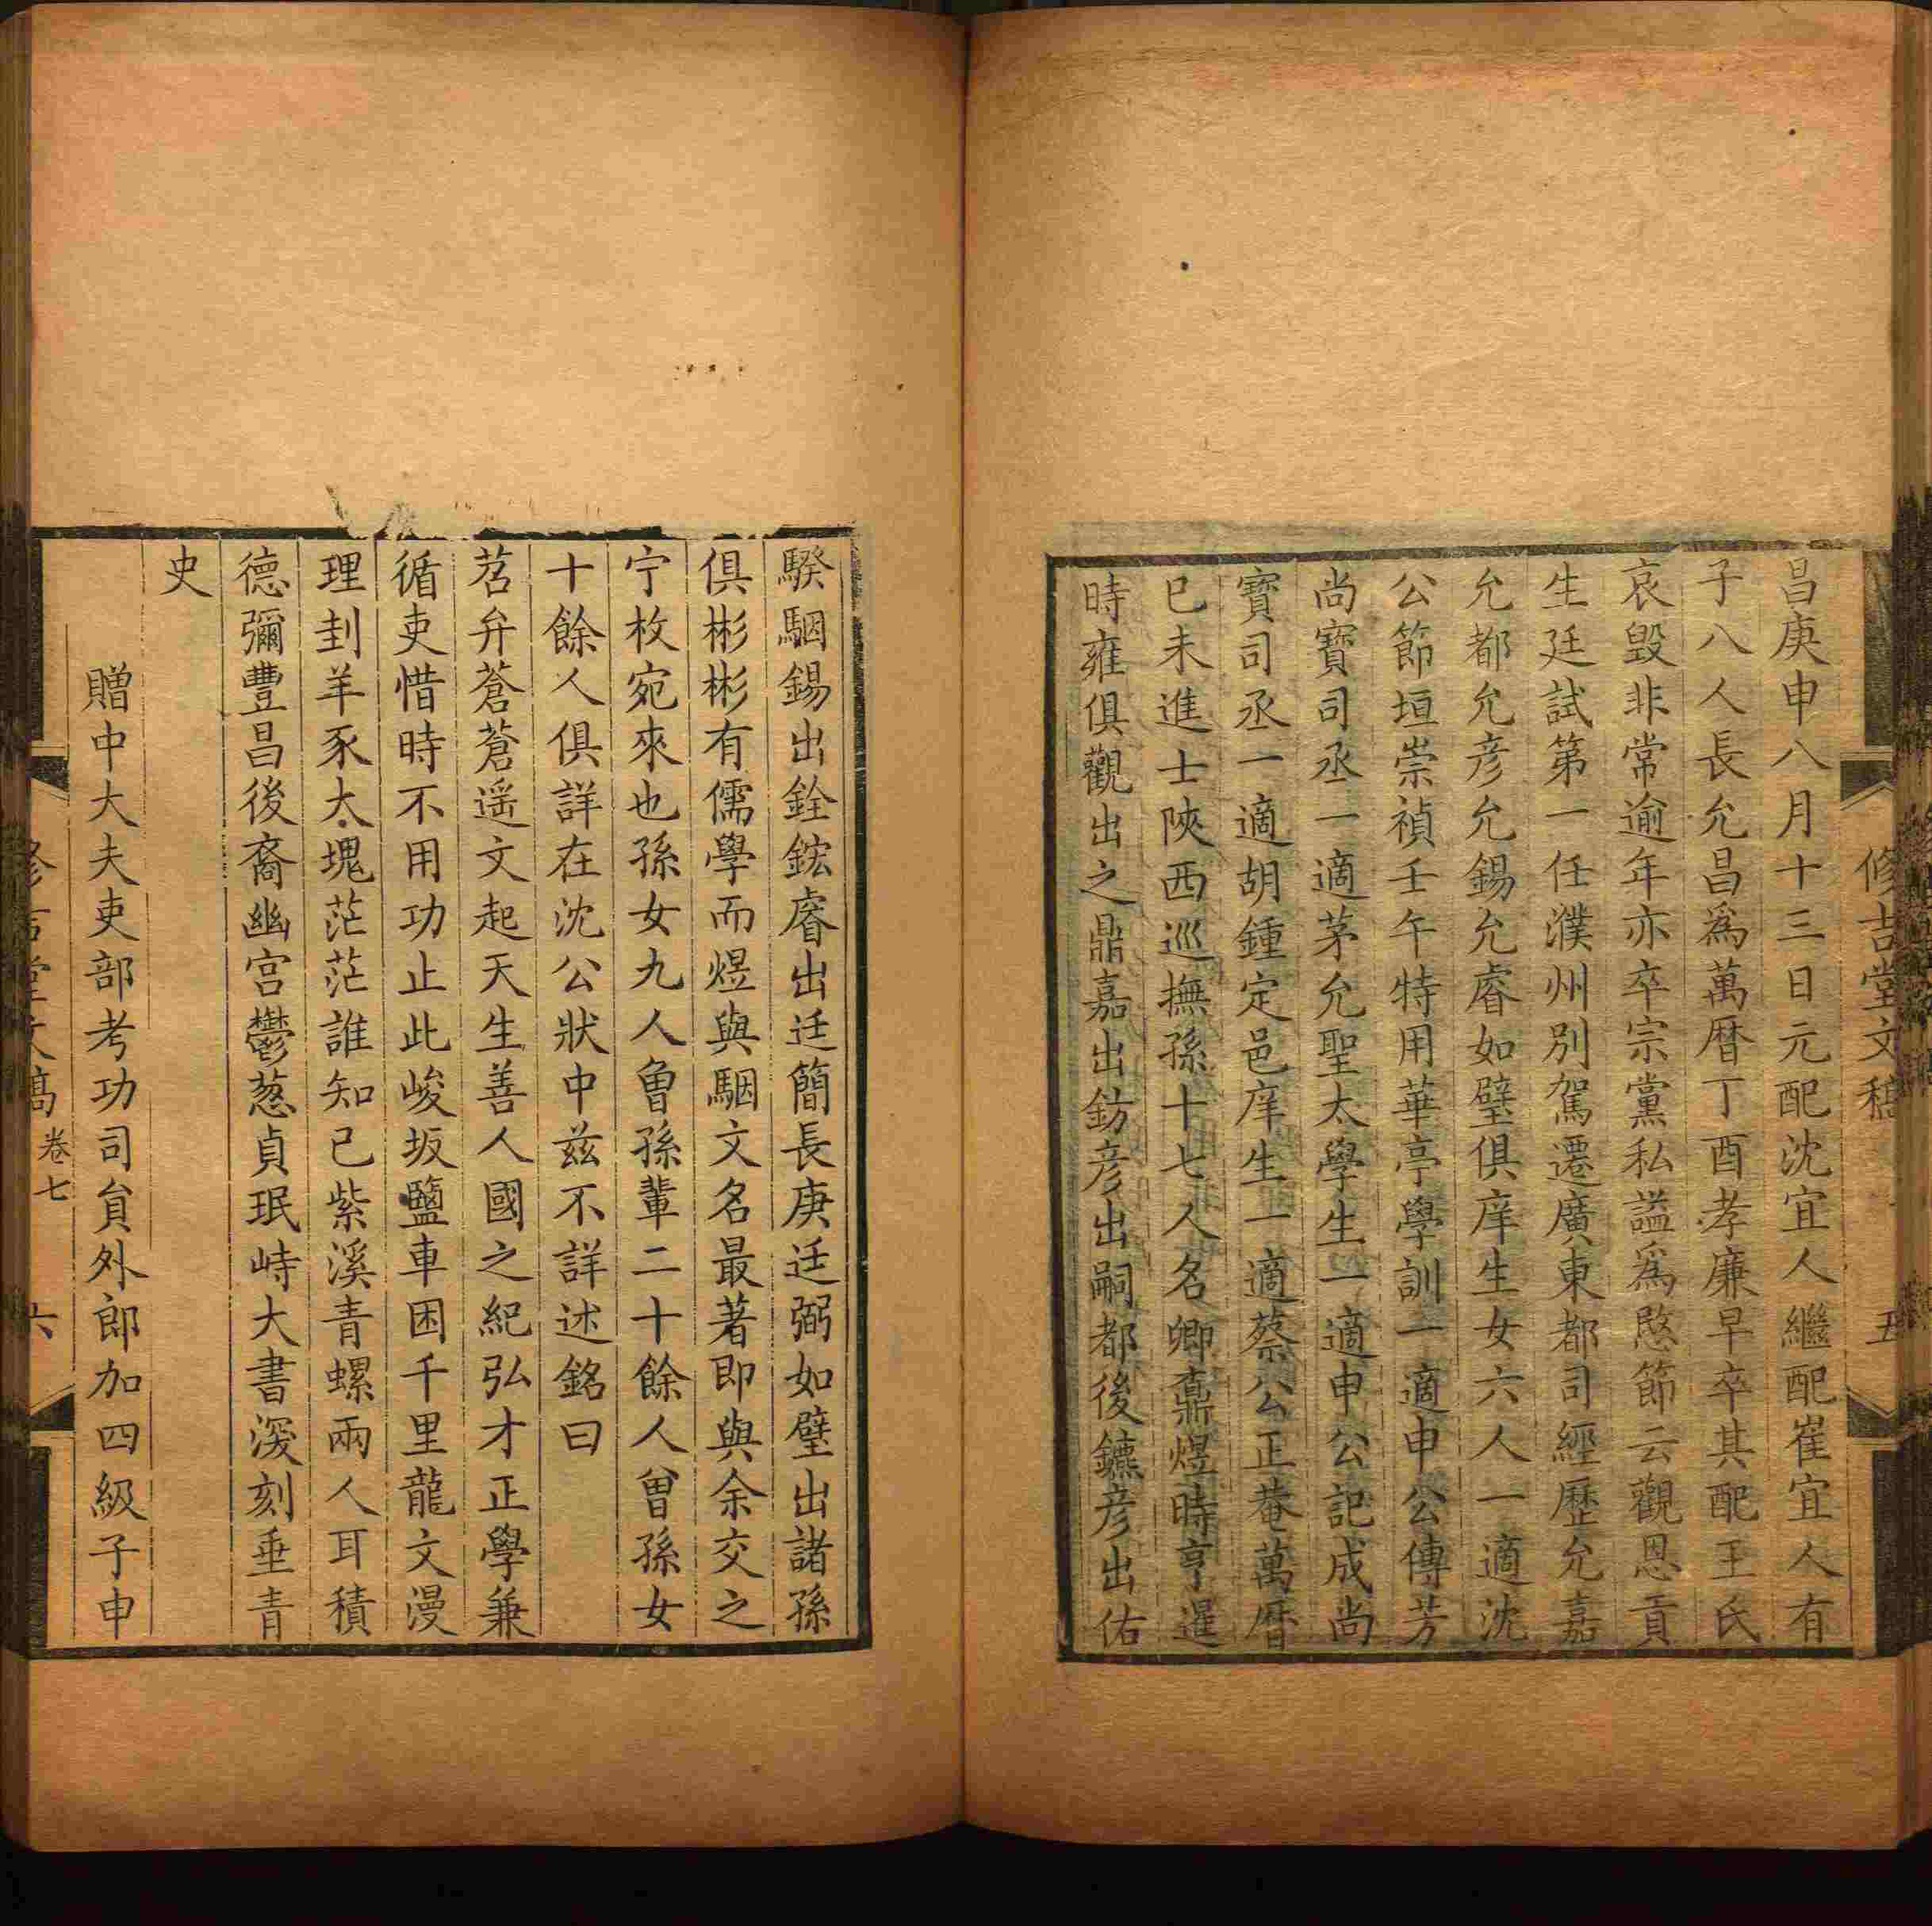 修吉堂文稿 五
昌庚申八月十三日元配沈宜人繼配崔宜人有
子八人長允昌爲萬曆丁酉孝廉早卒其配王氏
哀毀非常逾年亦卒宗黨私謚爲愍節云觀恩貢
生廷試第一任濮州別駕遷廣東都司經歷允嘉
允都允彦允錫允睿如璧俱庠生女六人一適沈
公節垣崇禎壬午特用華亭學訓一適申公傳芳
尚寶司丞一適茅允聖太學生一適申公記成尚
寶司丞一適胡鍾定邑庠生一適蔡公正菴萬曆
巳未進士陝西巡撫孫十七人名卿鼒煜時亨暹
時雍俱觀出之鼎嘉出鈁彦出嗣都後鑣彦出佑
騤駰錫出銓鋐睿出廷簡長庚廷弼如璧出諸孫
俱彬彬有儒學而煜與駰文名最著即與余交之
宁枚宛來也孫女九人曾孫輩二十餘人曾孫女
十餘人俱詳在沈公狀中兹不詳述銘曰
苕弁蒼蒼遥文起天生善人國之紀弘才正學兼
循吏惜時不用功止此峻坂鹽車困千里龍文漫
理刲羊豕太塊茫茫誰知已紫溪青螺兩人耳積
德彌豐昌後裔幽宫鬱葱貞珉峙大書深刻垂青
史
贈中大夫吏部考功司貟外郎加四級子申
修吉堂文稿 卷七 六